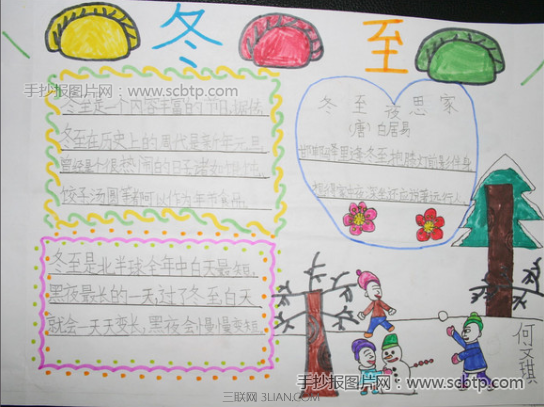 冬至
手抄报图片网：www.scbtp.com
冬至是一个内容丰富的节日,据传,
冬至在历史上的周代是新年元旦,
曾经是个很热闹的日子,诸如
饺子汤圆等都可以作为年节食
冬至夜思家
(唐)白居易
邯郸驿里逢冬至,抱膝灯前影伴身
想得家中夜深坐还应说着远行人。
冬至是北半球全年中白天最短、
黑夜最长的一天,过了冬至,白天
就会一天天变长,黑夜会慢慢变短.
何文琪
手抄报图片网：www.scbtp.com
三联网 3LIAN.COM